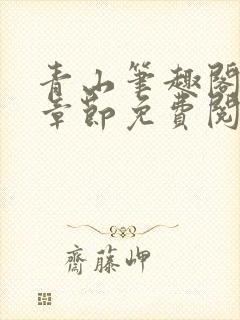 青山筆趣閣
章節免費閱
齋藤岬